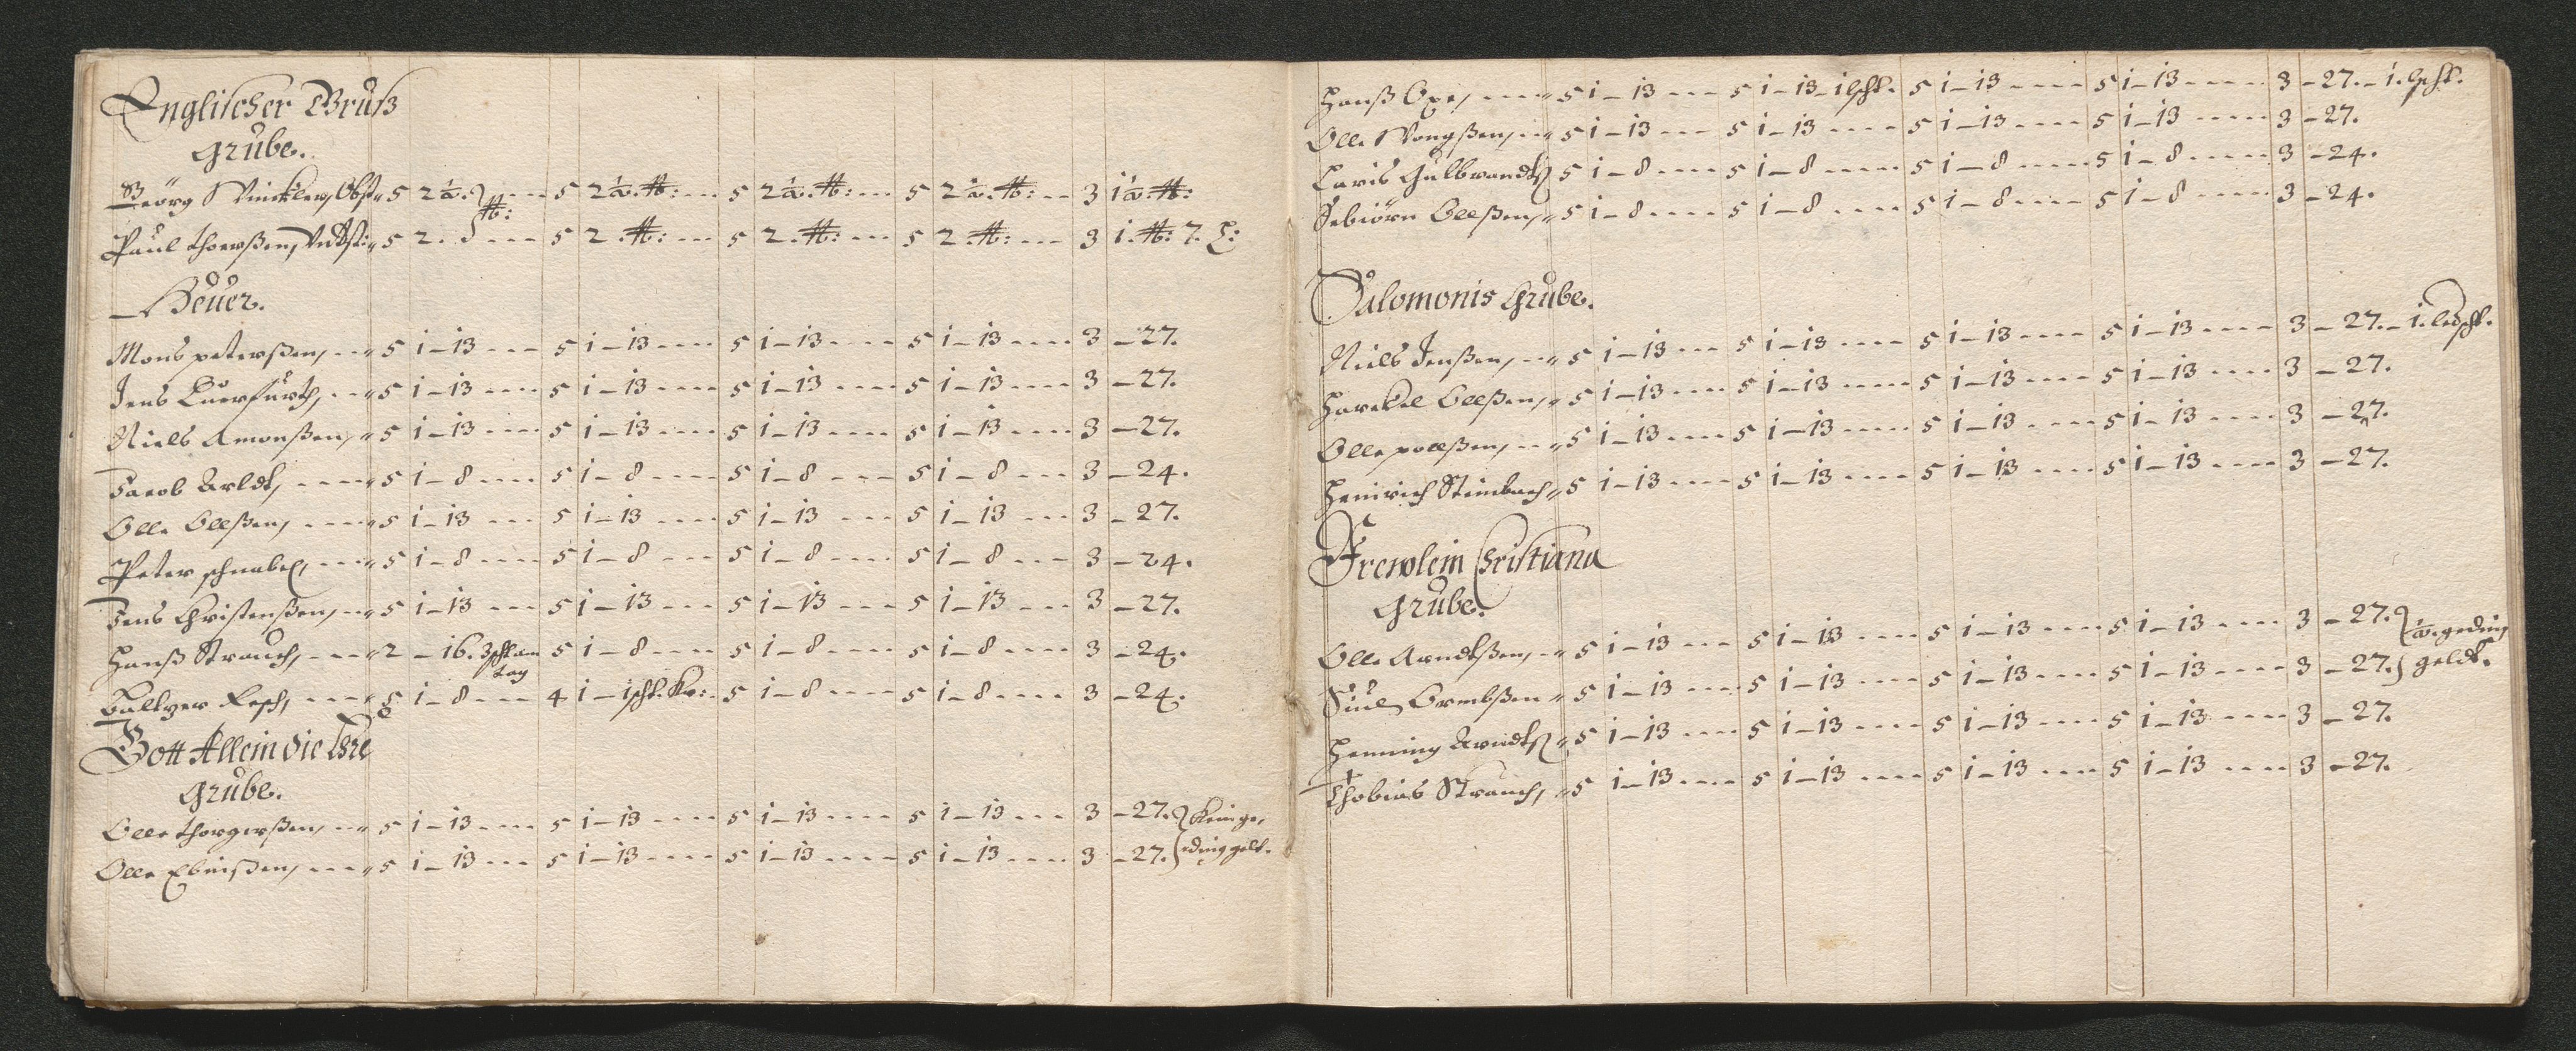 Englischer Gruß
Grube.
Geörg Winckler, Obst. 5 2½. 5 2½. ℔: 5 2½. ℔: 5 2½. ℔: 3 1½. ℔:
Paul Thorsßen, Vndtst. 5 2. ℔: 5 2. ℔: 5 2. ℔: 5 2. ℔: 3 1. ℔: 7.
Heüer.
Mons peterßen, 5 1 – 13 5 1 – 13 5 1 – 13 5 1 – 13 3 – 27.
Jens Querfurth, 5 1 – 13 5 1 – 13 5 1 – 13 5 1 – 13 3 – 27.
Niels Amonßen, 5 1 – 13 5 1 – 13 5 1 – 13 5 1 – 13 3 – 27.
Jacob Arldt, 5 1 – 8 5 1 – 8 5 1 – 8 5 1 – 8 3 – 24.
Olle Olleßen, 5 1 – 13 5 1 – 13 5 1 – 13 5 1 – 13 3 – 27.
Peter schnabel, 5 1 – 8 5 1 – 8 5 1 – 8 5 1 – 8 3 – 24.
Jens Christenßen, 5 1 – 13 5 1 – 13 5 1 – 13 5 1 – 13 3 – 27.
Hanß Strauch, 2 – 16. 5 1 – 8 5 1 – 8 5 1 – 8 3 – 24.
Baltzer Resch, 5 1 – 8 4 1 – 1 scht. Kr: 5 1 – 8 5 1 – 8 3 – 24.
Gott Allein die Ehre
Grube.
Olle Thorgerßen, 5 1 – 13 5 1 – 13 5 1 – 13 5 1 – 13 3 – 27. Kein ge,
Olle Ebnißen, 5 1 – 13 5 1 – 13 5 1 – 13 5 1 – 13 3 – 27. ding gelt.
Hanß Oxe, 5 1 – 13 5 1 – 13 – 1 lscht. 5 1 – 13 5 1 – 13 3 – 27. – 1. lscht.
Olle Wongßen, 5 1 – 13 5 1 – 13 5 1 – 13 5 1 – 13 3 – 27.
Laris Gulbrandtß 5 1 – 8 5 1 – 8 5 1 – 8 5 1 – 8 3 – 24.
Sebiörn Olleßen, 5 1 – 8 5 1 – 8 5 1 – 8 5 1 – 8 3 – 24.
Salomonis Grube.
Niels Jenßen, 5 1 – 13 5 1 – 13 5 1 – 13 5 1 – 13 3 – 27. – 1. ledscht.
Harekel Olleßen, 5 1 – 13 5 1 – 13 5 1 – 13 5 1 – 13 3 – 27.
Olle polleßen, 5 1 – 13 5 1 – 13 5 1 – 13 5 1 – 13 3 – 27.
Heinrich Steinbach 5 1 – 13 5 1 – 13 5 1 – 13 5 1 – 13 3 – 27.
Frewlein Christiana
Grube.
Olle Arndtßen, 5 1 – 13 5 1 – 13 5 1 – 13 5 1 – 13 3 – 27. ½. geding
Siul Ormbßen 5 1 – 13 5 1 – 13 5 1 – 13 5 1 – 13 3 – 27. geldt.
Henning Arndtß 5 1 – 13 5 1 – 13 5 1 – 13 5 1 – 13 3 – 27.
Thobias Strauch, 5 1 – 13 5 1 – 13 5 1 – 13 5 1 – 13 3 – 27.